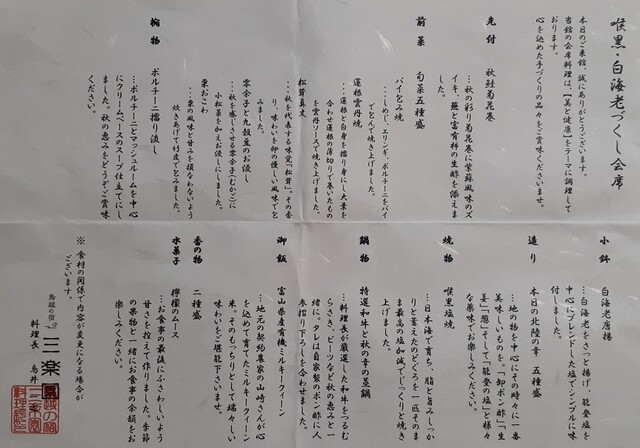 喉黒・白海老づくし会席
本日のご来館、誠にありがとうございます。
当館の会席料理は、【美と健康】をテーマに調理して
おります。
心を込めた手づくりの品々をご賞味くださいませ。
先付 秋鮭菊花巻
…秋の彩り菊花巻に紫蘇風味のズ
イキ、蕪と富有柿の生酢を添えま
した。
前菜 旬菜五種盛
パイ包み焼
…しめじ、エリンギ、ポルチーニをパイ
で包んで焼き上げました。
蓮根雲丹焼
…蓮根と白身を擂り身にし大葉を
合わせ蓮根の薄切りで巻いたもの
を雲丹ソースで焼き上げました。
松茸真丈
…秋を代表する味覚「松茸」。その香
り、味わいを卵の優しい風味で包
みました。
零余子と九穀豆のお浸し
…秋を感じさせる零余子(むかご)に
小松菜を加えお浸しにしました。
栗おこわ
…栗の風味と甘みを損なわないよう
炊きあげて竹皮で包みました。
椀物 ポルチーニ擂り流し
…ポルチーニとマッシュルームを中心
にクリームベースのスープ仕立てにし
ました。秋の恵みをどうぞご賞味
ください。
小鉢 白海老唐揚
…白海老をさっと揚げ、能登塩を
中心にブレンドした塩でシンプルに味
付しました。
造り 本日の北陸の幸 五種盛
…地の物を中心にその時々に一番
美味しいものを、「一御ポン酢」「生
姜」「葱」そして「能登の塩」と様々
な薬味でお楽しみください。
焼物 喉黒塩焼
…日本海で育ち、脂と旨みしっか
りと蓄えたのどぐろを一匹そのま
ま最高の塩加減でじっくりと焼き
上げました。
鍋物 特選和牛と秋の幸の蒸鍋
…料理長が厳選した和牛をつるむ
らさき、ビーツなど秋の恵みと一
緒に。タレは自家製のポン酢に人
参摺り下ろしを合わせました。
御飯 富山県産有機ミルキークィーン
…地元の契約農家の山崎さんが心
を込めて育てたミルキークィーン
米。そのもっちりとして瑞々しい
味わいをご堪能下さいませ。
香の物 二種盛
水菓子 檸檬のムース
…お食事の最後にふさわしいよう
甘さを控えて作りました。季節
の果物と一緒にお食事の余韻をお
楽しみください。
※ 食材の関係で内容が変更になる場合が
ございます。
三楽
料理長 鳥井